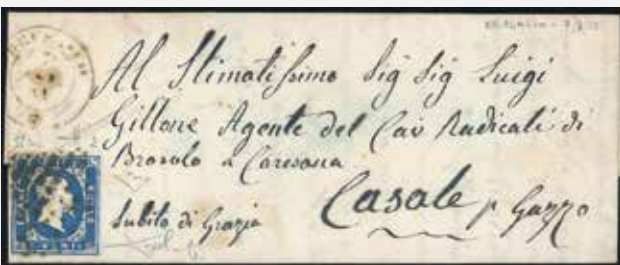 Al Stimatissimo Sig Sig Luigi
Gillone Agente del Cav Radicati di
Brosolo a Caresana
Subito di Grazia
Casale p Gazzo